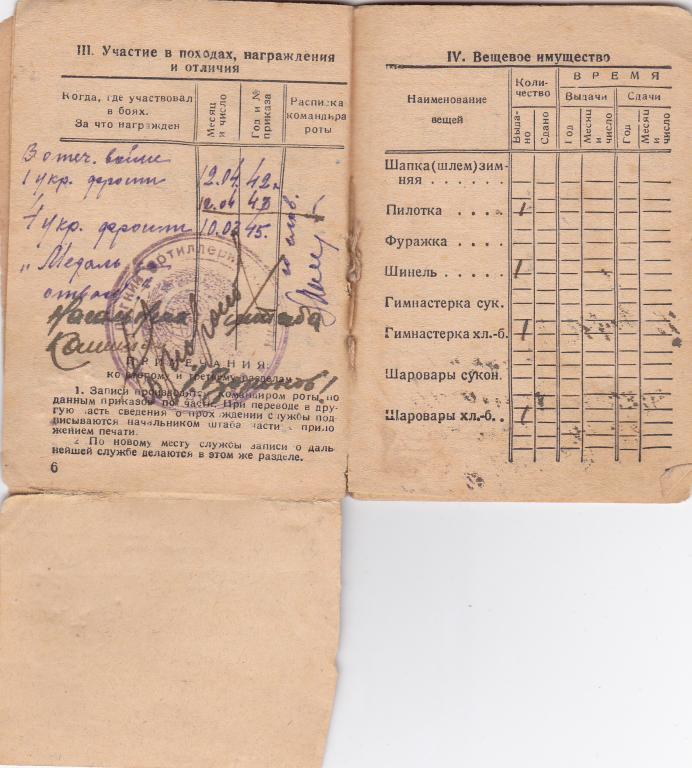 III. Участие в походах, награждения
и отличия
Когда, где участвовал
в боях.
За что награжден
Месяц
и число
Год и №
приказа
Расписка
командира
роты
В отеч. войне
1 укр. фронт 12.04. 42 г.
12.04 43
4 укр. фронт 10.03 45.
"Медаль за
отвагу"
Начальник штаба
ПРИМЕЧАНИЯ
ко второму и третьему разделам
1. Записи производит командиром роты, по
данным приказов по части. При переводе в дру-
гую часть сведения о прохождении службы под-
писываются начальником штаба части с прило
жением печати.
2. По новому месту службы записи о даль-
нейшей службе делаются в этом же разделе.
6
IV. Вещевое имущество
Наименование
вещей
Коли-
чество
ВРЕМЯ
Выдачи
Сдачи
Выда-
но
Сдано
Год
Месяц
и
число
Год
Месяц
и
число
Шапка(шлем)зим-
няя . . . . . .
Пилотка . . . . 1
Фуражка . . . .
Шинель . . . . 1
Гимнастерка сук.
Гимнастерка хл.-б. 1
Шаровары сукон.
Шаровары хл.-б. . 1